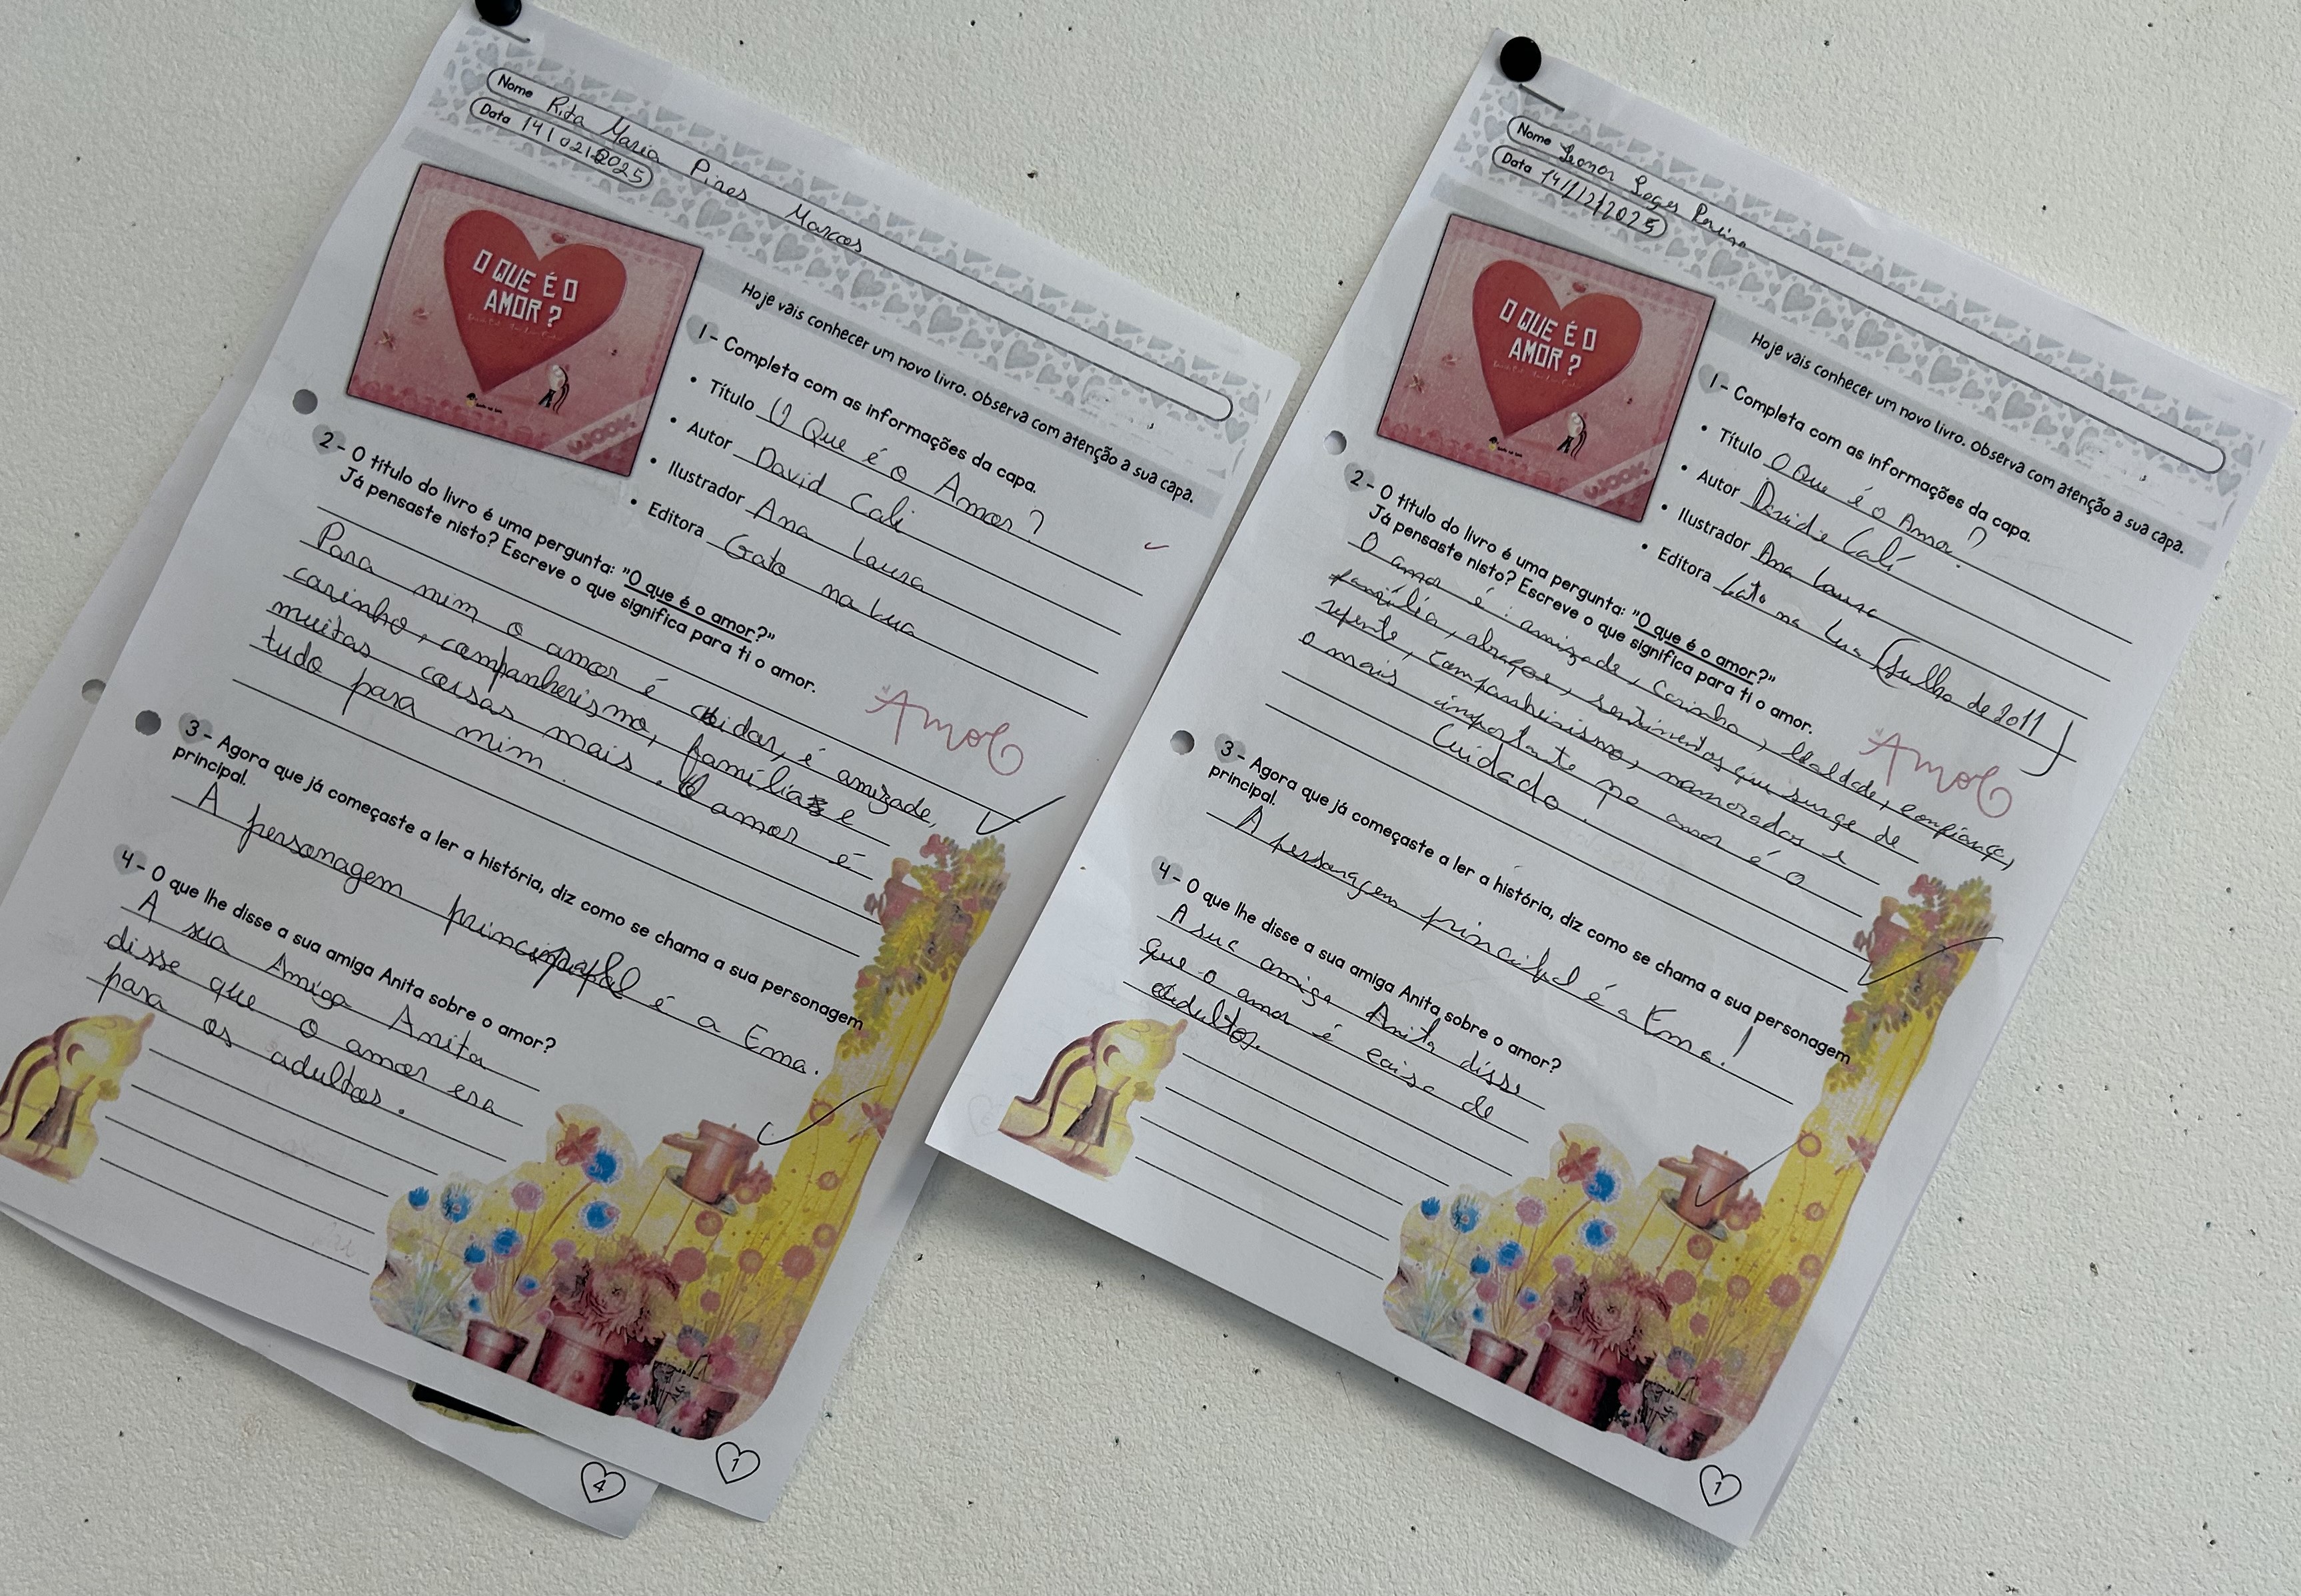 Nome Rita Maria Pires Marcos
Data 14/02/2025
O QUE É O
AMOR?
WOOK
Hoje vais conhecer um novo livro. Observa com atenção a sua capa.
1 - Completa com as informações da capa.
• Título O Que é o Amor?
• Autor David Cali
• Ilustrador Ana Laura
• Editora Gato na Lua
2 - O título do livro é uma pergunta: "O que é o amor?"
Já pensaste nisto? Escreve o que significa para ti o amor.
Para mim o amor é cuidar, é amizade,
carinho, companheirismo, família e
muitas coisas mais. O amor é
tudo para mim.
"Amor
3 - Agora que já começaste a ler a história, diz como se chama a sua personagem
principal.
A personagem principal é a Ema.
4 - O que lhe disse a sua amiga Anita sobre o amor?
A sua Amiga Anita
disse que o amor era
para os adultos.
1
4
Nome Leonor Lages Pereira
Data 14/12/2025
O QUE É O
AMOR?
WOOK
Hoje vais conhecer um novo livro. Observa com atenção a sua capa.
1 - Completa com as informações da capa.
• Título O Que é o Amor?
• Autor Davide Calí
• Ilustrador Ana Laura
• Editora Gato na Lua (Julho de 2011)
2 - O título do livro é uma pergunta: "O que é o amor?"
Já pensaste nisto? Escreve o que significa para ti o amor.
O amor é: amizade, carinho, lealdade, confiança,
família, abraços, sentimentos que surge de
repente, companheirismo, namorados e
o mais importante no amor é o
Cuidado.
"Amor
3 - Agora que já começaste a ler a história, diz como se chama a sua personagem
principal.
A personagem principal é a Ema!
4 - O que lhe disse a sua amiga Anita sobre o amor?
A sua amiga Anita disse
que o amor é coisa de
adultos.
1